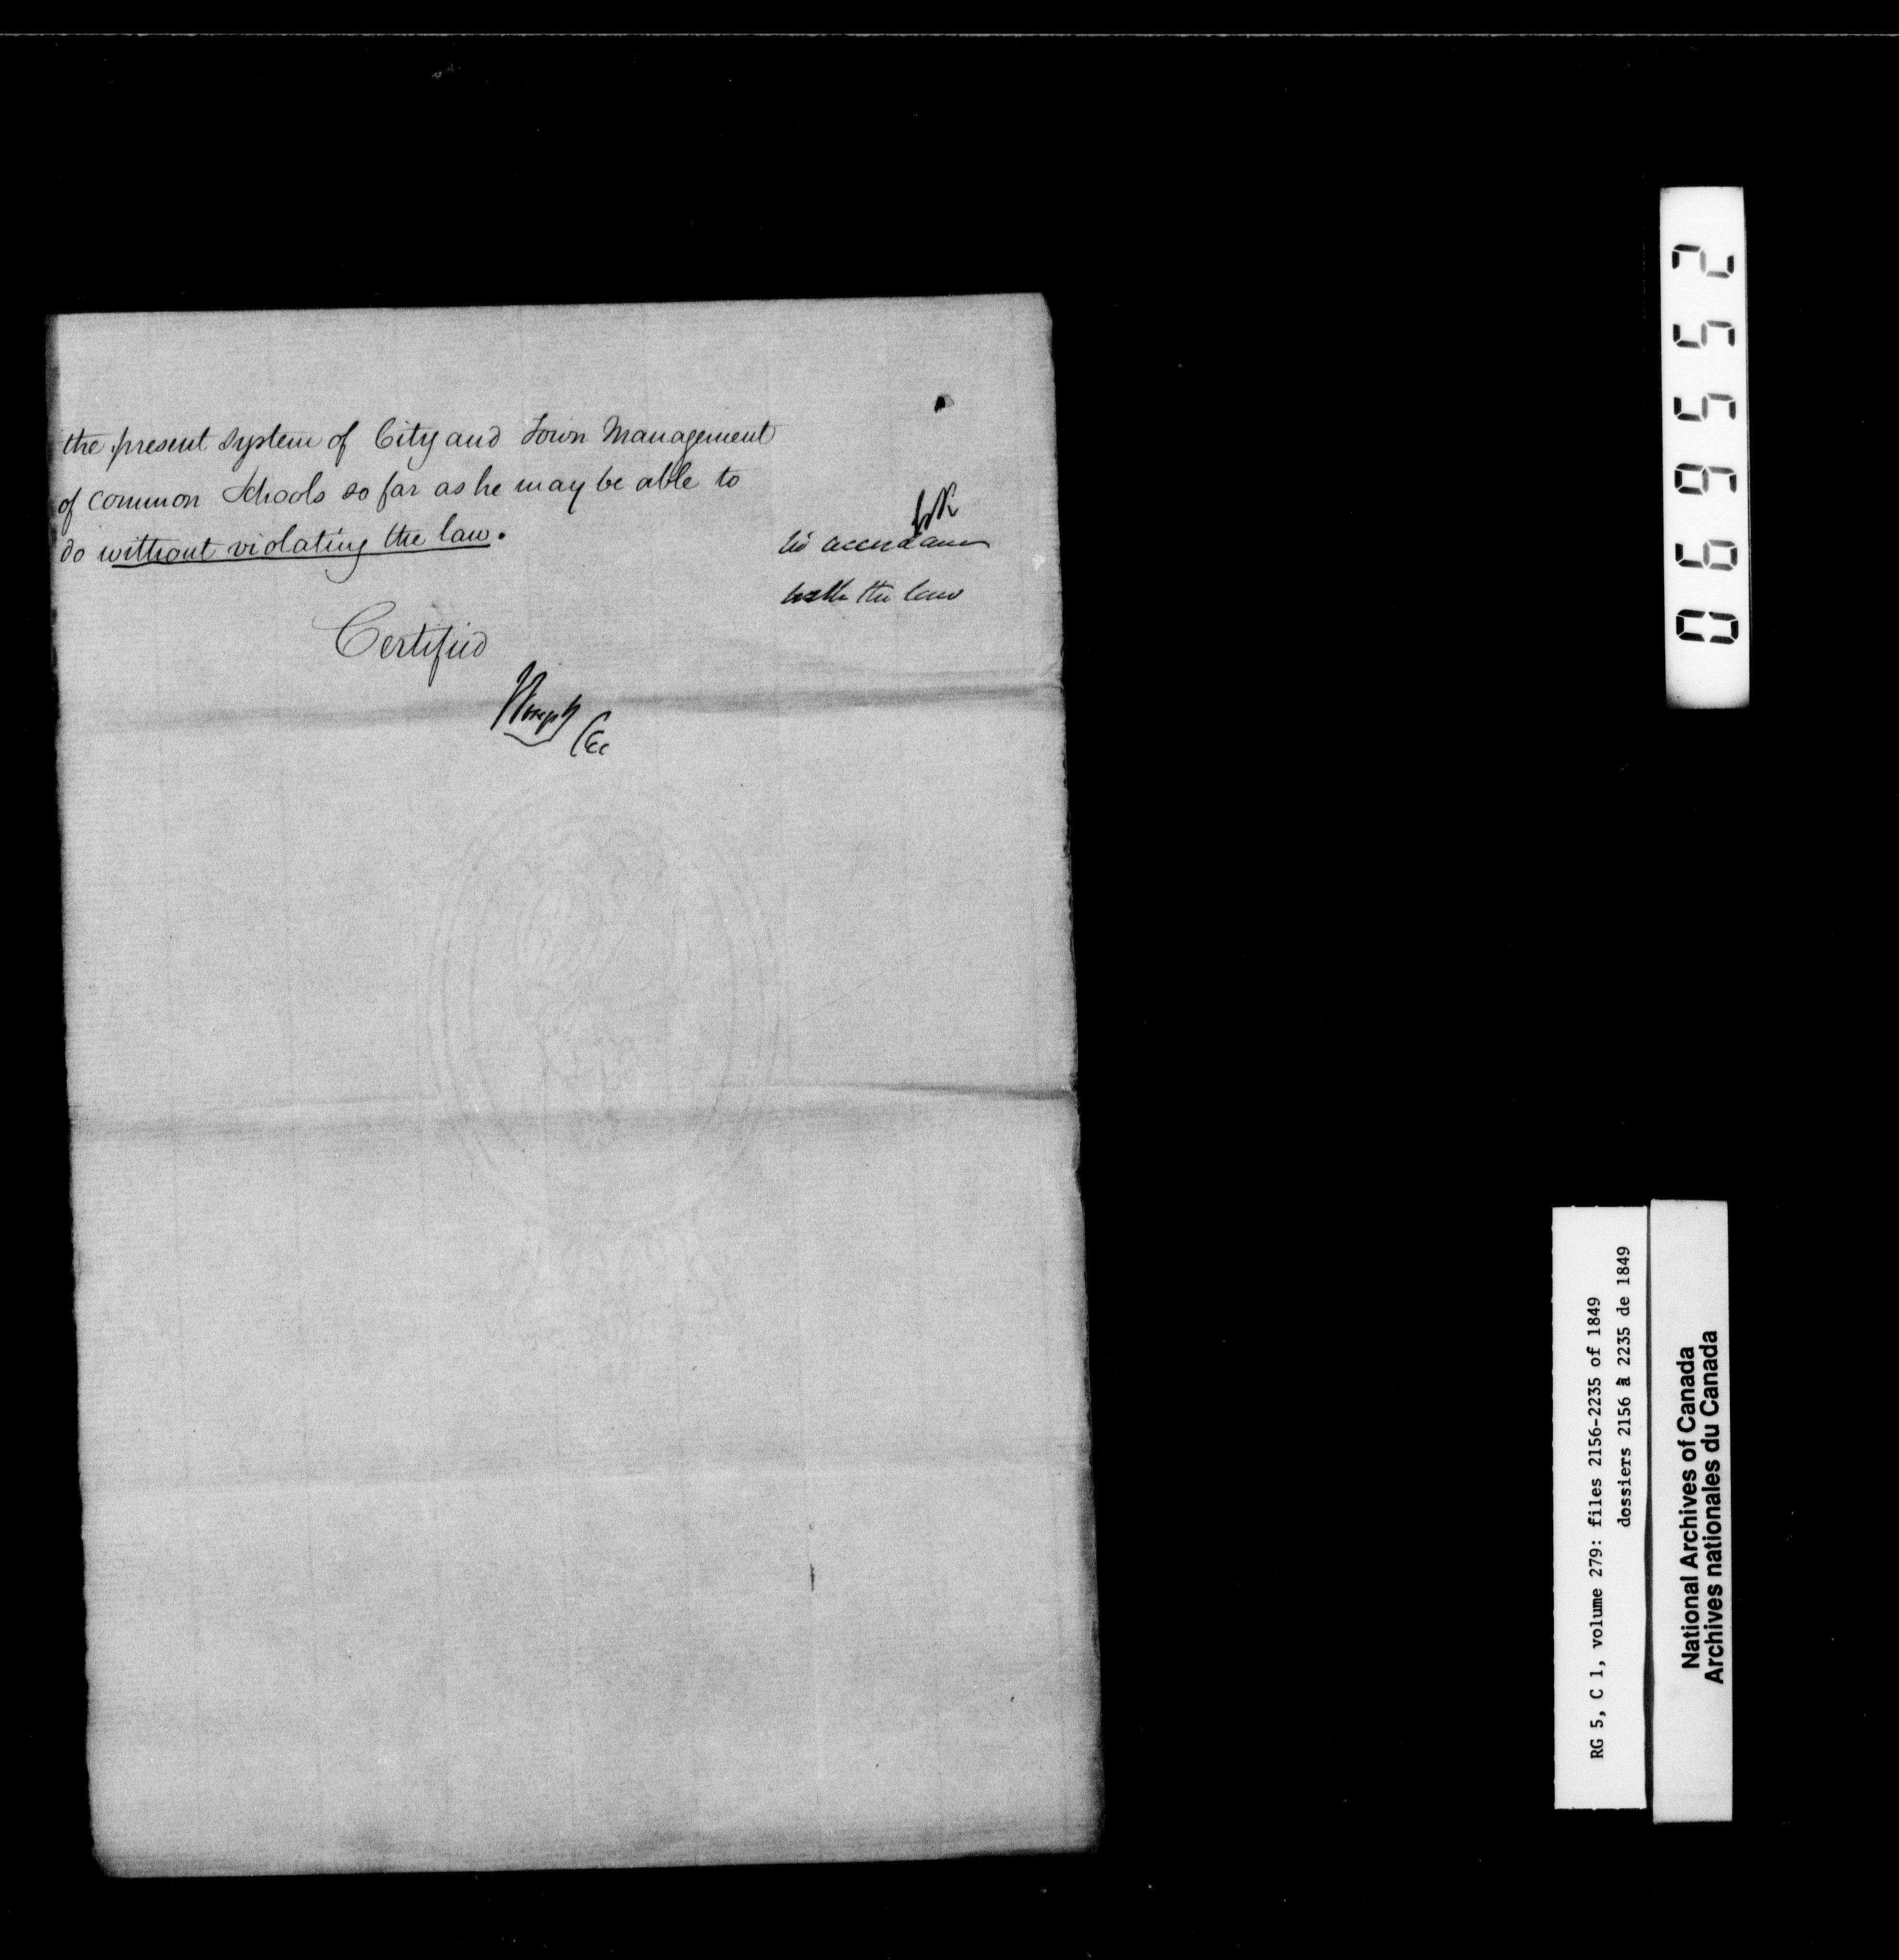 the present system of City and Town Management
of common Schools so far as he may be able to
do without violating the law.
in accordance
with the law
Certified
JJoseph
CEC
069552
RG 5, C 1, volume 279: files 2156-2235 of 1849
dossiers 2156 à 2235 de 1849
National Archives of Canada
Archives nationales du Canada